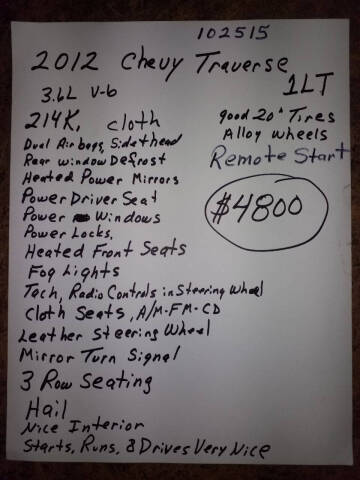 102515
2012 Chevy Traverse
1LT
3.6L V-6
214K, cloth
good 20" Tires
Alloy wheels
Remote Start
$4800
Dual Air bags, Side & head
Rear window Defrost
Heated Power Mirrors
Power Driver Seat
Power Windows
Power Locks,
Heated Front Seats
Fog Lights
Tach, Radio Controls in Steering Wheel
Cloth Seats, A/M-FM-CD
Leather Steering Wheel
Mirror Turn Signal
3 Row Seating
Hail
Nice Interior
Starts, Runs, & Drives Very Nice